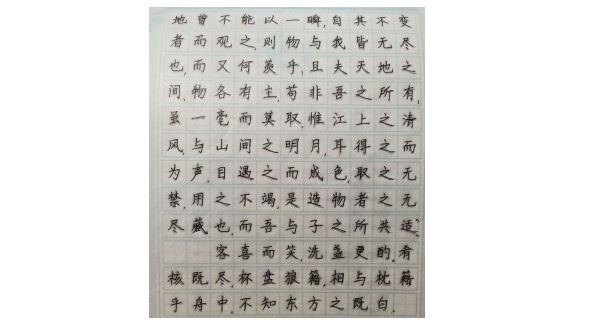 地曾不能以一瞬,自其不变
者而观之,则物与我皆无尽
也,而又何羡乎,且夫天地之
间,物各有主,苟非吾之所有,
虽一毫而莫取,惟江上之清
风,与山间之明月,耳得之而
为声,目遇之而成色,取之无
禁,用之不竭,是造物者之无
尽藏也,而吾与子之所共适”.
客喜而笑,洗盏更酌.肴
核既尽,杯盘狼籍,相与枕藉
乎舟中,不知东方之既白.